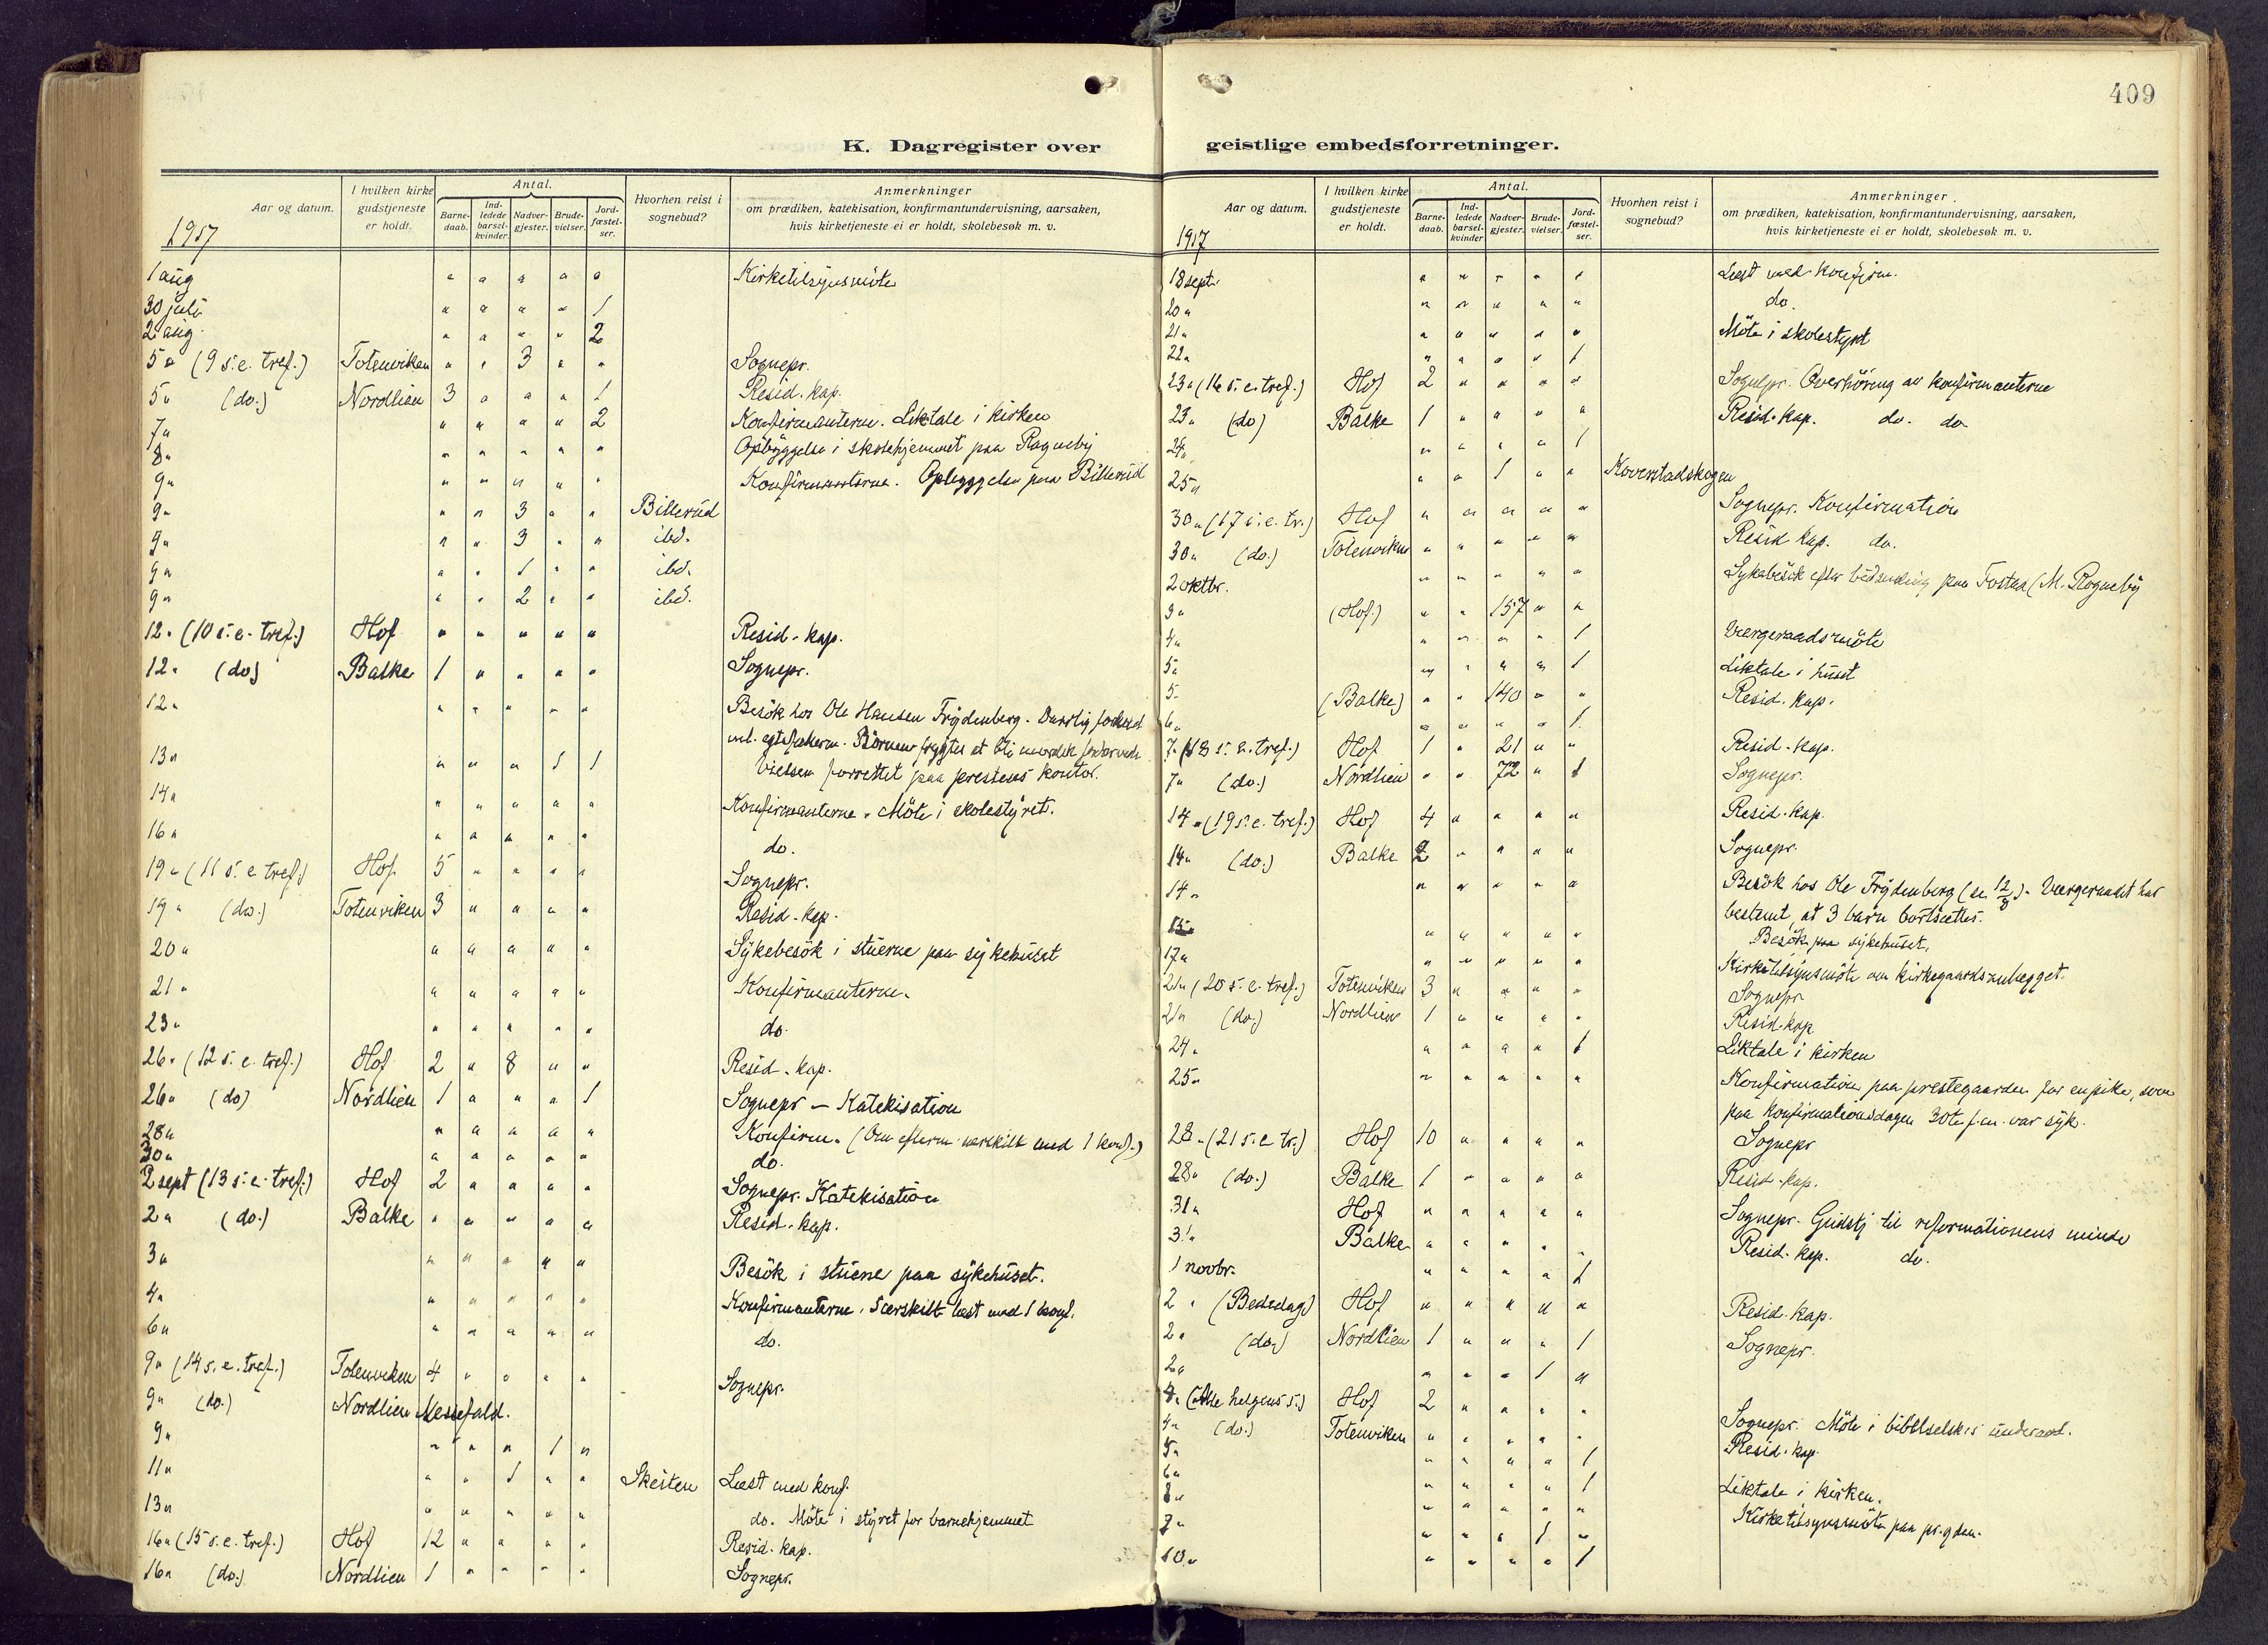 409
K. Dagregister over geistlige embedsforretninger.
Aar og datum.
I hvilken kirke gudstjeneste er holdt.
Antal.
Barne-daab.
Ind-ledede barsel-kvinder.
Nadver-gjester.
Brude-vielser.
Jord-fæstel-ser.
Hvorhen reist i sognebud?
Anmerkninger
om prædiken, katekisation, konfirmantundervisning, aarsaken,
hvis kirketjeneste ei er holdt, skolebesøk m. v.
1917
1 aug " " " " " Kirketilsynsmöte
30 juli " " " " 1
2 aug. " " " " 2
5 " (9 s. e. tref.) Totenviken " " 3 " " Sognepr.
5 " (do.) Nordlien 3 " " " 1 Resid. kap.
7 " " " " " 2 Konfirmanterne. Liktale i kirken
8 " " " " " " Opbyggelse i skolehjemmet paa Rogneby
9 " " " " " " Konfirmanterne. Opbyggelse paa Billerud
9 " " " 3 " " Billerud
9 " " " 3 " " ibd.
9 " " " 1 " " ibd.
9 " " " 2 " " ibd.
12 " (10 s. e. tref.) Hof " " " " " Resid. kap.
12 " (do) Balke 1 " " " " Sognepr.
12 " " " " " " Besök hos Ole Hansen Frydenberg. Daarlig forhold
ml. egtefolkene. Barnene frygtes at bli moralsk fordærvede
13 " " " " 1 1 Vielsen forrettet paa prestens kontor.
14 " " " " " " Konfirmanterne. Möte i skolestyret.
16 " " " " " " do.
19 " (11 s. e. tref.) Hof 5 " " " " Sognepr.
19 " (do.) Totenviken 3 " " " " Resid. kap.
20 " " " " " " Sykebesök i stuerne paa sykehuset
21 " " " " " " Konfirmanterne.
23 " " " " " " do.
26 " (12 s. e. tref.) Hof 2 " 8 " " Resid. kap.
26 " (do) Nordlien 1 " " " 1 Sognepr – Katekisation
28 " " " " " " Konfirm. (Om efterm. særskilt med 1 konf.)
30 " " " " " " do.
2 sept (13 s. e. tref.) Hof 2 " " " " Sognepr. Katekisation
2 " (do.) Balke " " " " " Resid. kap.
3 " " " " " " Besök i stuene paa sykehuset.
4 " " " " " " Konfirmanterne. Særskilt læst med 1 konf.
6 " " " " " " do.
9 " (14 s. e. tref.) Totenviken 4 " " " " Sognepr.
9 " (do.) Nordlien Messefald.
9 " " " " 1 "
11 " " " 1 " " Skeiten Læst med konf.
13 " " " " " " do. Möte i styret for barnehjemmet
16 " (15 s. e. tref.) Hof 12 " " " " Resid. kap.
16 " (do.) Nordlien 1 " " " " Sognepr.
Aar og datum.
I hvilken kirke gudstjeneste er holdt.
Antal.
Barne-daab.
Ind-ledede barsel-kvinder
Nadver-gjester.
Brude-vielser.
Jord-fæstel-ser.
Hvorhen reist i sognebud?
Anmerkninger.
om prædiken, katekisation, konfirmantundervisning, aarsaken,
hvis kirketjeneste ei er holdt, skolebesøk m. v.
1917
18 sept. " " " " 1 Læst med konfirm.
20 " " " " " " do.
21 " " " " " " Möte i skolestyret
22 " " " " " 1
23 " (16 s. e. tref.) Hof 2 " " " " Sognepr. Overhöring av konfirmanterne
23 " (do) Balke 1 " " " " Resid. kap. do. do
24 " " " " " 1
25 " " " 1 " " Koverstadskogen
30 " (17 s. e. tr.) Hof " " " " " Sognepr. Konfirmation
30 " (do.) Totenviken " " " " " Resid kap. do.
2 oktbr. " " " " " Sykebesök efter budsending paa Fostua (M. Rogneby
3 " (Hof) " " 157 " "
4 " " " " " 1 Værgeraadsmöte
5 " " " " " 1 Liktale i huset
5 " (Balke) " " 140 " " Resid. kap.
6 " " " " " 1
7 " (18 s. e. tref.) Hof 1 " 21 " " Resid. kap.
7 " (do.) Nordlien " " 72 " 1 Sognepr.
14 " (19 s. e. tref.) Hof 4 " " " " Resid. kap.
14 " (do.) Balke 2 " " " " Sognepr.
14 " " " " " " Besök hos Ole Frydenberg (se 12/8). Værgeraadet har
bestemt, at 3 barn bortsættes.
15 " " " " " " Besök paa sykehuset.
17 " " " " " " Kirketilsynsmöte om kirkegaardsanlegget.
21 " (20 s. e. tref.) Totenviken 3 " " " " Sognepr
21 " (do.) Nordlien 1 " " " " Resid. kap
24 " " " " " 1 Liktale i kirken
25 " " " " " " Konfirmation paa prestegaarden for en pike, som
paa konfirmationsdagen 30te f. m. var syk.
28 " (21 s. e tr.) Hof 10 " " " " Sognepr
28 " (do.) Balke 1 " " " " Resid. kap.
31 " Hof " " " " " Sognepr. Gudstj til reformationens minde
31 " Balke " " " " " Resid. kap. do.
1 novbr. " " " " 1
2 " (Bededag) Hof " " " " " Resid. kap.
2 " (do.) Nordlien 1 " " " 1 Sognepr.
2 " " " " 1 "
4 " (Alle helgens s.) Hof 2 " " " " Sognepr. Möte i bibelselsk.s underavd.
4 " (do.) Totenviken " " " " " Resid. kap
5 " " " " " 1
6 " " " " " 1 Liktale i kirken.
8 " " " " " " Kirketilsynsmöte paa pr.gden.
7 " " " " 1 "
10 " " " " " 1